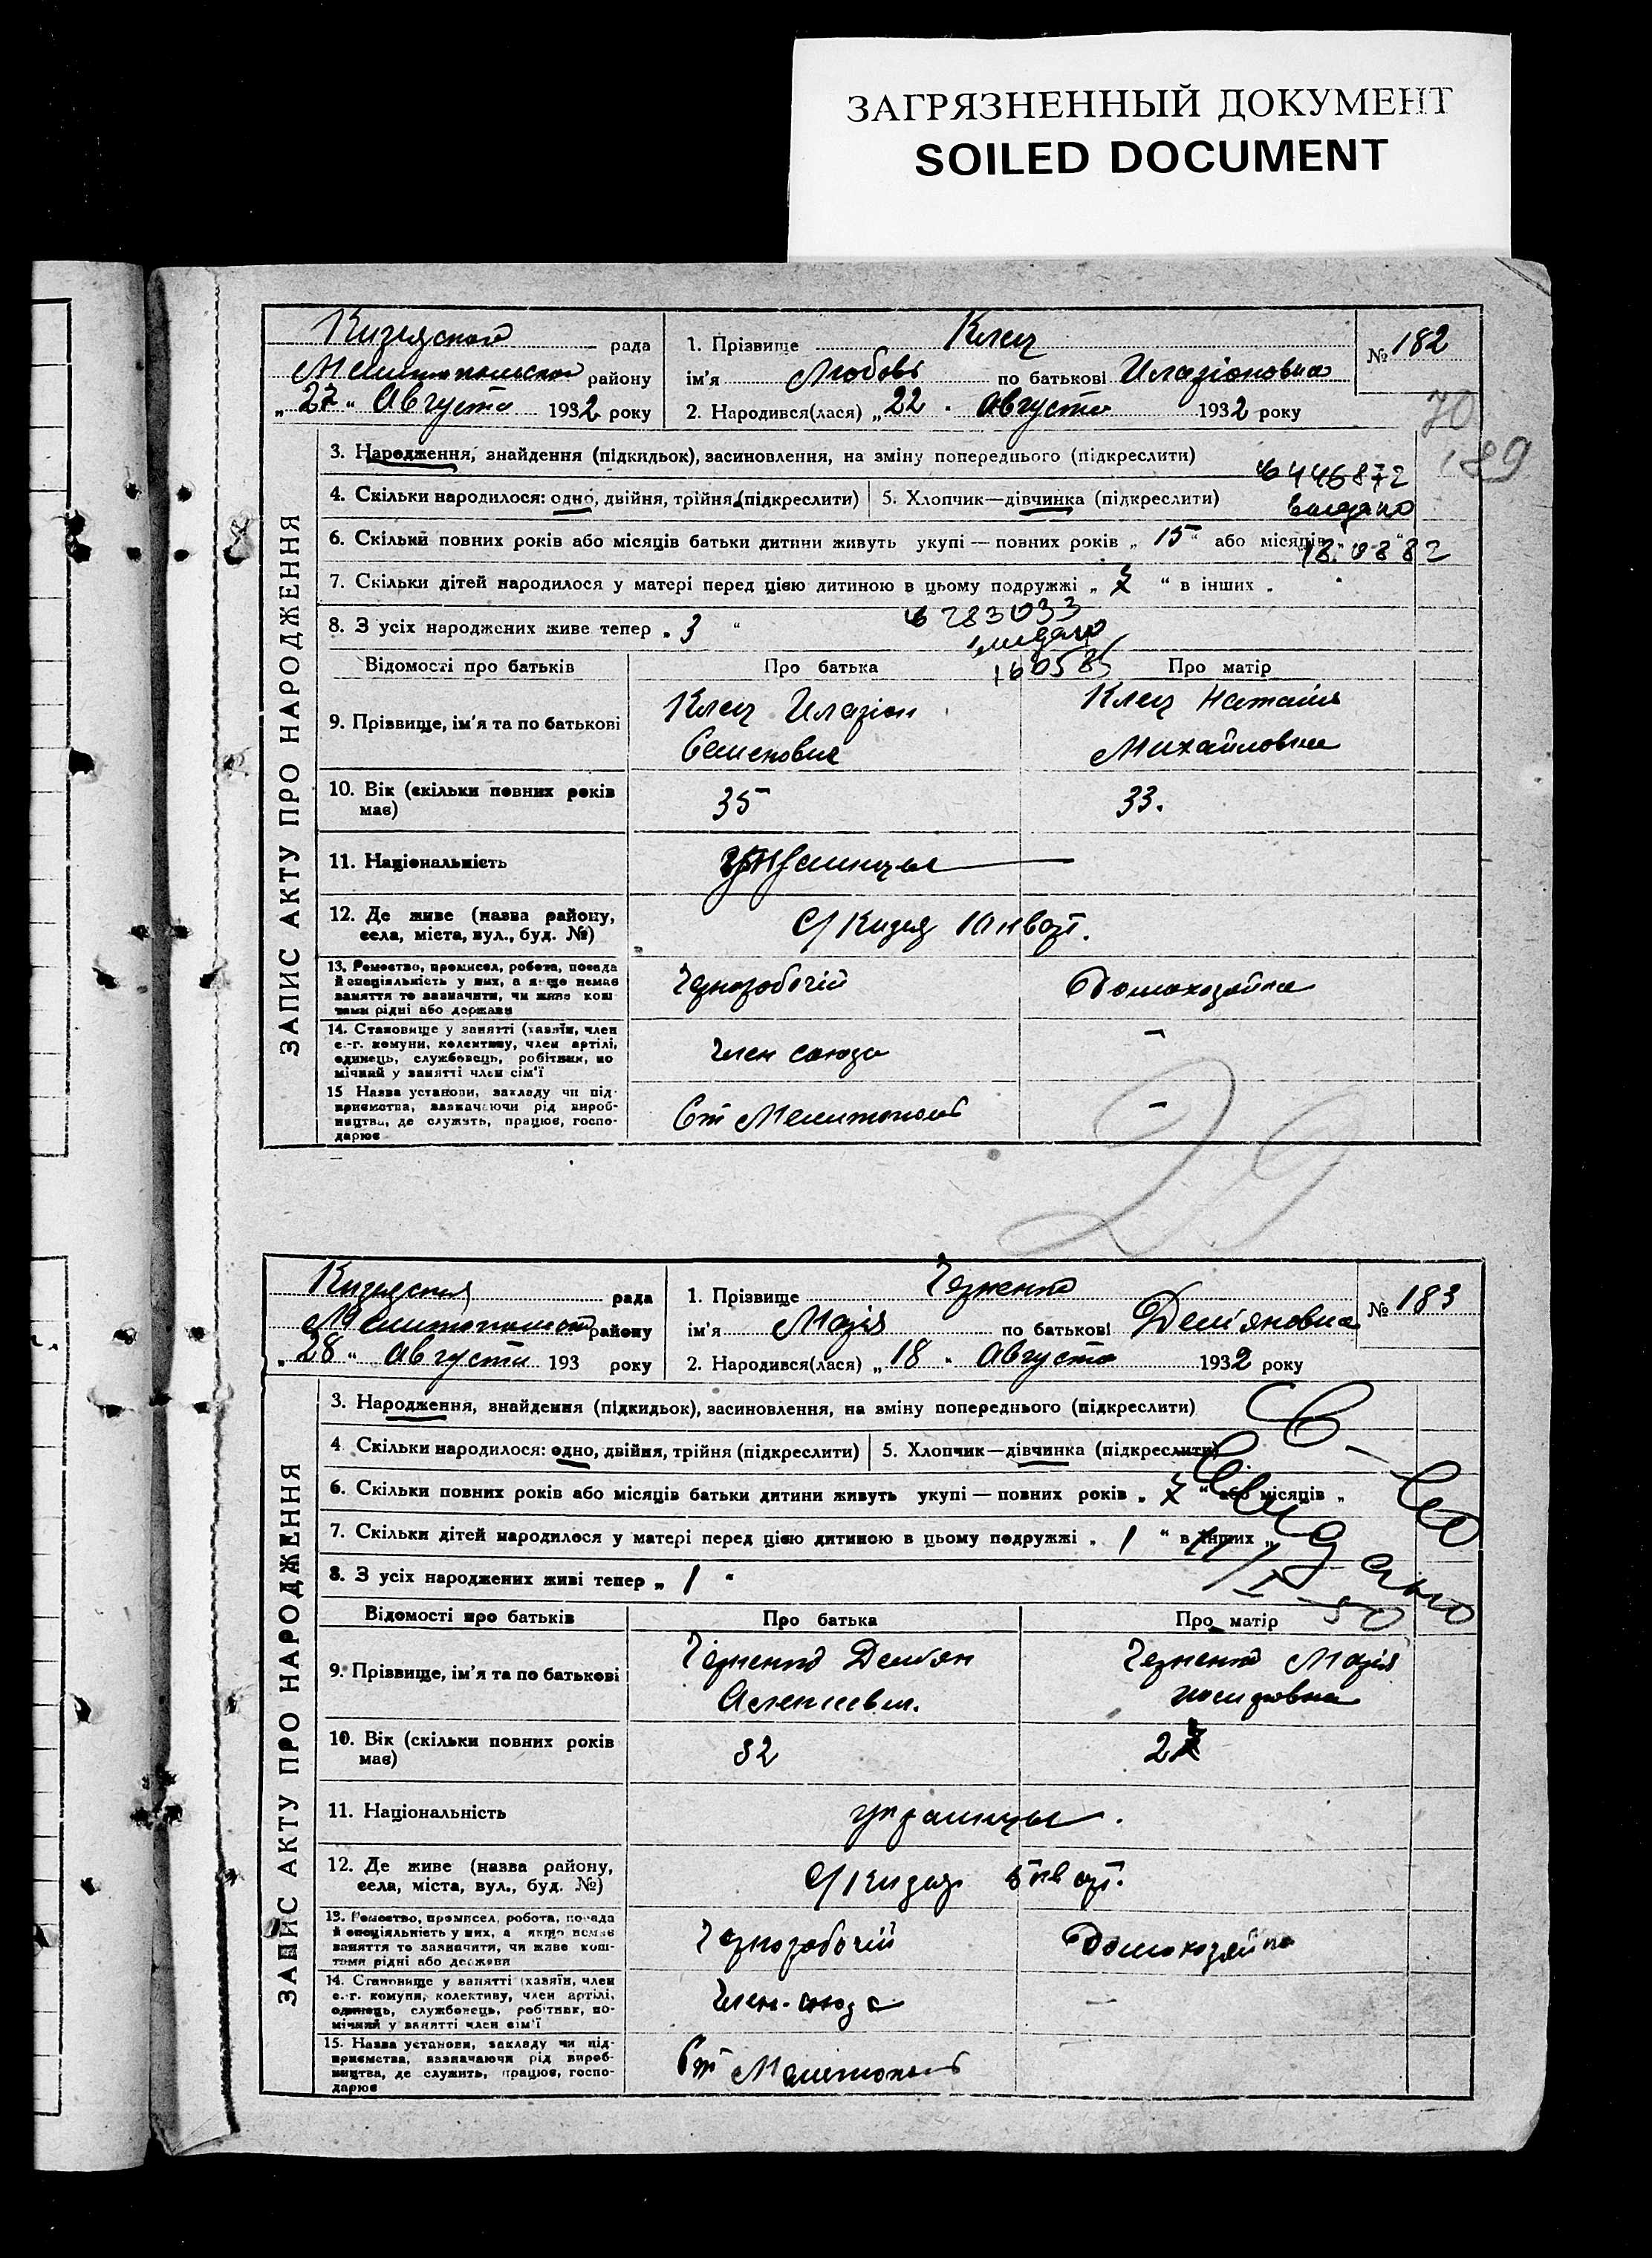 ЗАГРЯЗНЕННЫЙ ДОКУМЕНТ
SOILED DOCUMENT
ЗАПИС АКТУ ПРО НАРОДЖЕННЯ
Кизиярской рада
Мелитопольского району
„27“ Августа 1932 року
1. Прізвище Клец
ім'я Любовь по батькові Иларіоновна
2. Народився(лася) „22“ Августа 1932 року
№ 182
70
189
3. Народження, знайдення (підкидьок), засиновлення, на зміну попереднього (підкреслити)
4. Скільки народилося: одно, двійня, трійня (підкреслити) 5. Хлопчик—дівчинка (підкреслити)
446872
выдано
18.08.82
6. Скільки повних років або місяців батьки дитини живуть укупі—повних років „15“ або місяців „
7. Скільки дітей народилося у матері перед цією дитиною в цьому подружжі „7“ в інших „
8. З усіх народжених живе тепер „3“
283033
выдано
160585
Відомості про батьків Про батька Про матір
9. Прізвище, ім'я та по батькові Клец Иларіон Клец Наталія
Семенович Михайловна
10. Вік (скільки повних років має) 35 33.
11. Національність Украинцы
12. Де живе (назва району, села, міста, вул., буд. №) С/Кизияр 10 кварт.
13. Ремество, промисел, робота, посада й спеціяльність у них, а якщо немає заняття то зазначити, чи живе коштами рідні або держави Чернорабочій Домохозяйка
14. Становище у занятті (хазяїн, член с.-г. комуни, колективу, член артілі, одинець, службовець, робітник, помічний у занятті член сім'ї Член союза –
15 Назва установи, закладу чи підприємства, зазначаючи рід виробництва, де служить, працює, господарює Ст Мелитополь –
29
ЗАПИС АКТУ ПРО НАРОДЖЕННЯ
Кизиярская рада
Мелитопольской району
„28“ Августа 193 року
1. Прізвище Черненко
ім'я Марія по батькові Дем'яновна
2. Народився(лася) „18“ Августа 1932 року
№ 183
3. Народження, знайдення (підкидьок), засиновлення, на зміну попереднього (підкреслити)
4 Скільки народилося: одно, двійня, трійня (підкреслити) 5. Хлопчик—дівчинка (підкреслити)
С-во
выдано
6. Скільки повних років або місяців батьки дитини живуть укупі—повних років „7“ або місяців „
7. Скільки дітей народилося у матері перед цією дитиною в цьому подружжі „1“ в інших „
8. З усіх народжених живі тепер „1“
Відомості про батьків Про батька Про матір
9. Прізвище, ім'я та по батькові Черненко Дем'ян Черненко Марія
Алексеевич.
10. Вік (скільки повних років має) 32
11. Національність украинцы.
12. Де живе (назва району, села, міста, вул., буд. №) С/Кизияр 5 кварт.
13. Ремество, промисел, робота, посада й спеціяльність у них, а якщо немає заняття то зазначити, чи живе коштами рідні або держави Чернорабочій Домохозяйка
14. Становище у занятті (хазяїн, член с.-г. комуни, колективу, член артілі, одинець, службовець, робітник, помічний у занятті член сім'ї Член союза –
15. Назва установи, закладу чи підприємства, зазначаючи рід виробництва, де служить, працює, господарює Ст Мелитополь